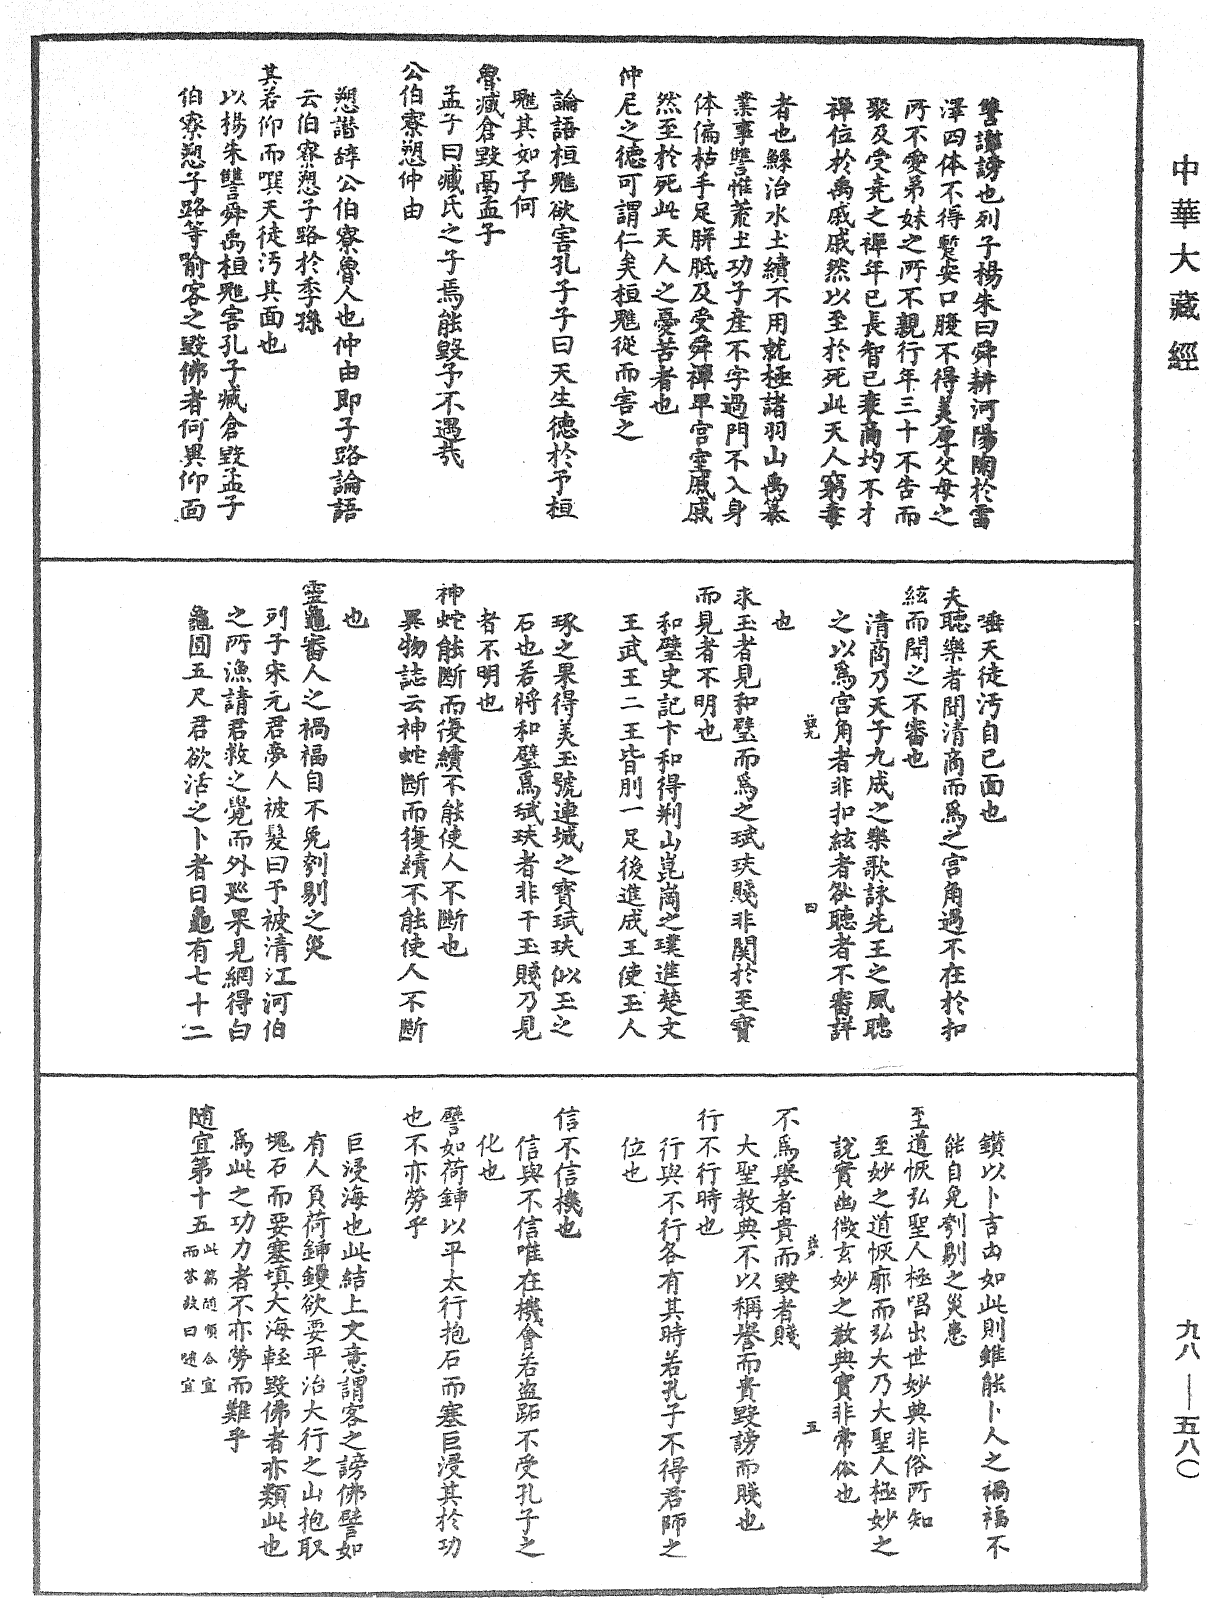 中華大藏經
讐讟謗也列子楊朱曰舜耕河陽陶於雷
澤四体不得蹔安口腹不得美厚父母之
所不愛弟妹之所不親行年三十不告而
娶及受堯之禪年已長智已衰商均不才
禪位於禹戚戚然以至於死此天人窮毒
者也鯀治水土績不用就極諸羽山禹纂
業事讐惟荒土功子產不字過門不入身
体偏枯手足胼胝及受舜禪卑宮室戚戚
然至於死此天人之憂苦者也
仲尼之德可謂仁矣桓魋從而害之
論語桓魋欲害孔子子曰天生德於予桓
魋其如予何
魯臧倉毀鬲孟子
孟子曰臧氏之子焉能毀予不遇㢤
公伯寮愬仲由
愬譖辞公伯寮魯人也仲由即子路論語
云伯寮愬子路於季孫
其若仰而噀天徒汚其面也
以楊朱讐舜禹桓魋害孔子臧倉毀孟子
伯寮愬子路等喻客之毀佛者何異仰面
唾天徒汚自己面也
夫聽樂者聞清商而爲之宮角過不在於扣
絃而聞之不審也
清商乃天子九成之樂歌詠先王之風聽
之以爲宮角者非扣絃者欲聽者不審詳
也
四
求玉者見和璧而爲之珷玞賤非関於至寳
而見者不明也
和璧史記卞和得荆山崑崗之璞進楚文
王武王二王皆刖一足後進成王使玉人
琢之果得美玉號連城之寳珷玞似玉之
石也若將和璧爲珷玞者非干玉賤乃見
者不明也
神蛇能斷而復續不能使人不斷也
異物誌云神蛇斷而復續不能使人不斷
也
靈龜審人之禍福自不免刳剔之災
列子宋元君夢人被髮曰予被清江河伯
之所漁請君救之覺而外廵果見網得白
龜圓五尺君欲活之卜者曰龜有七十二
鑚以卜吉凶如此則雖能卜人之禍福不
能自免刳剔之災患
至道恢弘聖人極唱出世妙典非俗所知
至妙之道恢廓而弘大乃大聖人極妙之
說實幽微玄妙之教典實非常俗也
五
不爲譽者貴而毀者賤
大聖教典不以稱譽而貴毀謗而賤也
行不行時也
行與不行各有其時若孔子不得君師之
位也
信不信機也
信與不信唯在機會若盗跖不受孔子之
化也
譬如荷鍤以平太行抱石而塞巨浸其於功
也不亦勞乎
巨浸海也此結上文意謂客之謗佛譬如
有人負荷鍤钁欲要平治大行之山抱取
塊石而要塞填大海輕毀佛者亦類此也
爲此之功力者不亦勞而難乎
随宜第十五此篇随順合宜
而荅故曰随宜
九八——五八〇